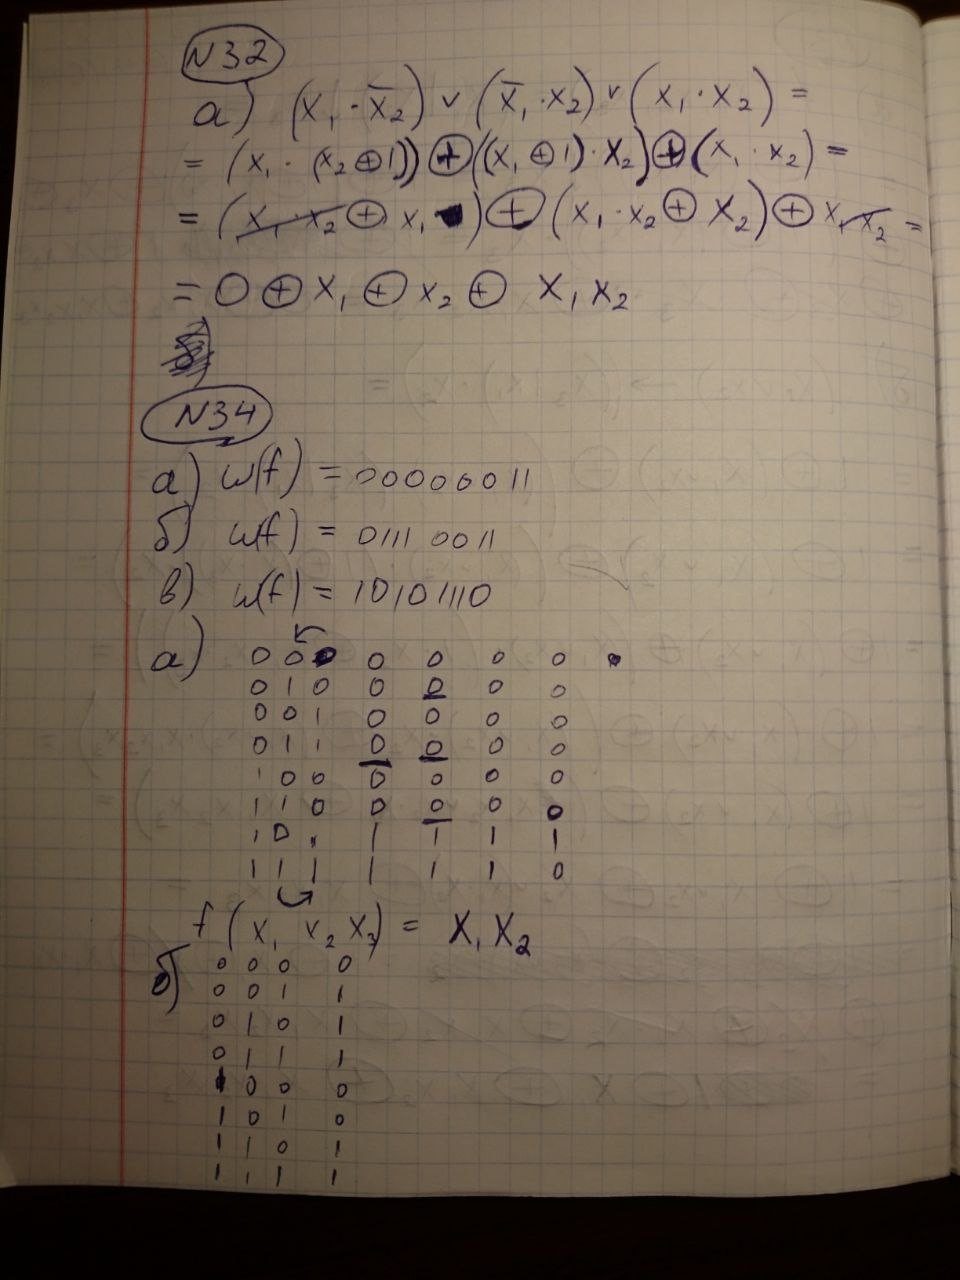 N32
а) (x₁ · x̄₂) ∨ (x̄₁ · x₂) ∨ (x₁ · x₂) =
= (x₁ · (x₂ ⊕ 1)) ⊕ ((x₁ ⊕ 1) · x₂) ⊕ (x₁ · x₂) =
= (x₁ · x₂ ⊕ x₁) ⊕ (x₁ · x₂ ⊕ x₂) ⊕ x₁ x₂ =
= 0 ⊕ x₁ ⊕ x₂ ⊕ x₁ x₂
N34
а) w(f) = 00000011
б) w(f) = 01110011
в) w(f) = 10101110
а) 0 0 0 0 0 0 0
0 1 0 0 0 0 0
0 0 1 0 0 0 0
0 1 1 0 0 0 0
1 0 0 0 0 0 0
1 1 0 0 0 0 0
1 0 1 1 1 1 1
1 1 1 1 1 1 0
f (x₁ x₂ x₃) = x₁ x₂
б) 0 0 0 0
0 0 1 1
0 1 0 1
0 1 1 1
1 0 0 0
1 0 1 0
1 1 0 1
1 1 1 1